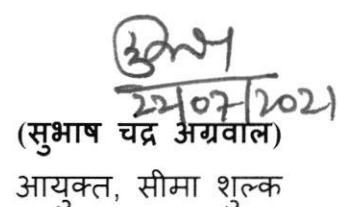 22/07/2021
(सुभाष चंद्र अग्रवाल)
आयुक्त, सीमा शुल्क